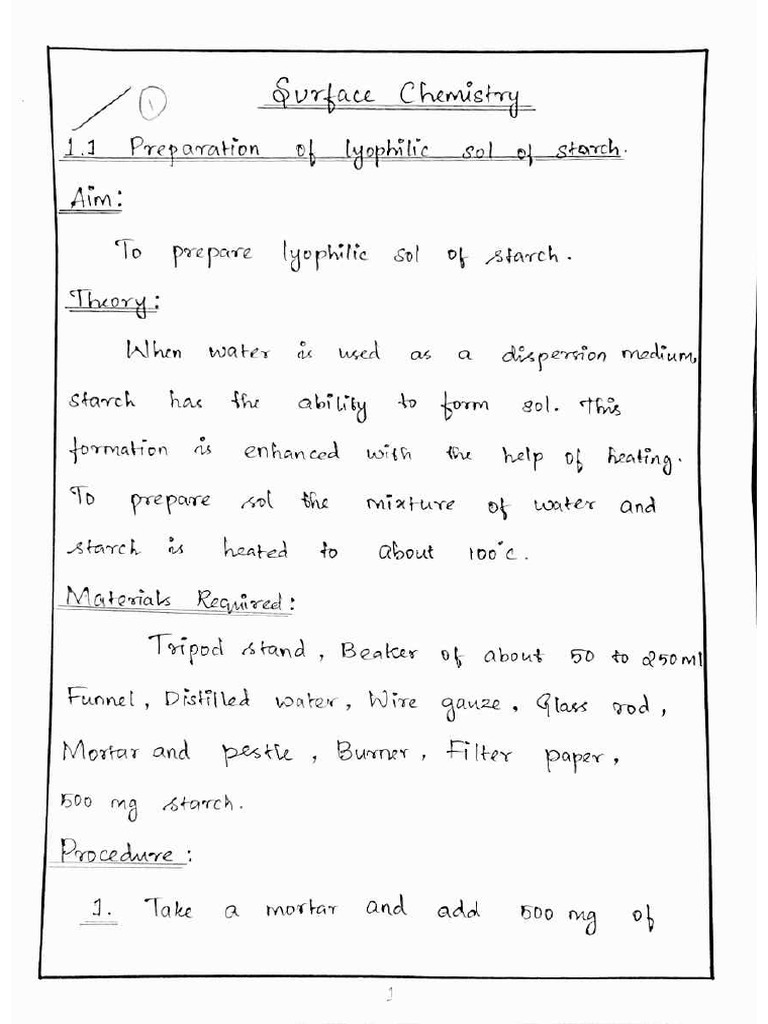 1
Surface Chemistry
1.1 Preparation of lyophilic sol of starch.
Aim:
To prepare lyophilic sol of starch.
Theory:
When water is used as a dispersion medium,
starch has the ability to form sol. This
formation is enhanced with the help of heating.
To prepare sol the mixture of water and
starch is heated to about 100°c.
Materials Required:
Tripod stand, Beaker of about 50 to 250ml
Funnel, Distilled water, Wire gauze, Glass rod,
Mortar and pestle, Burner, Filter paper,
500 mg starch.
Procedure:
1. Take a mortar and add 500 mg of
1